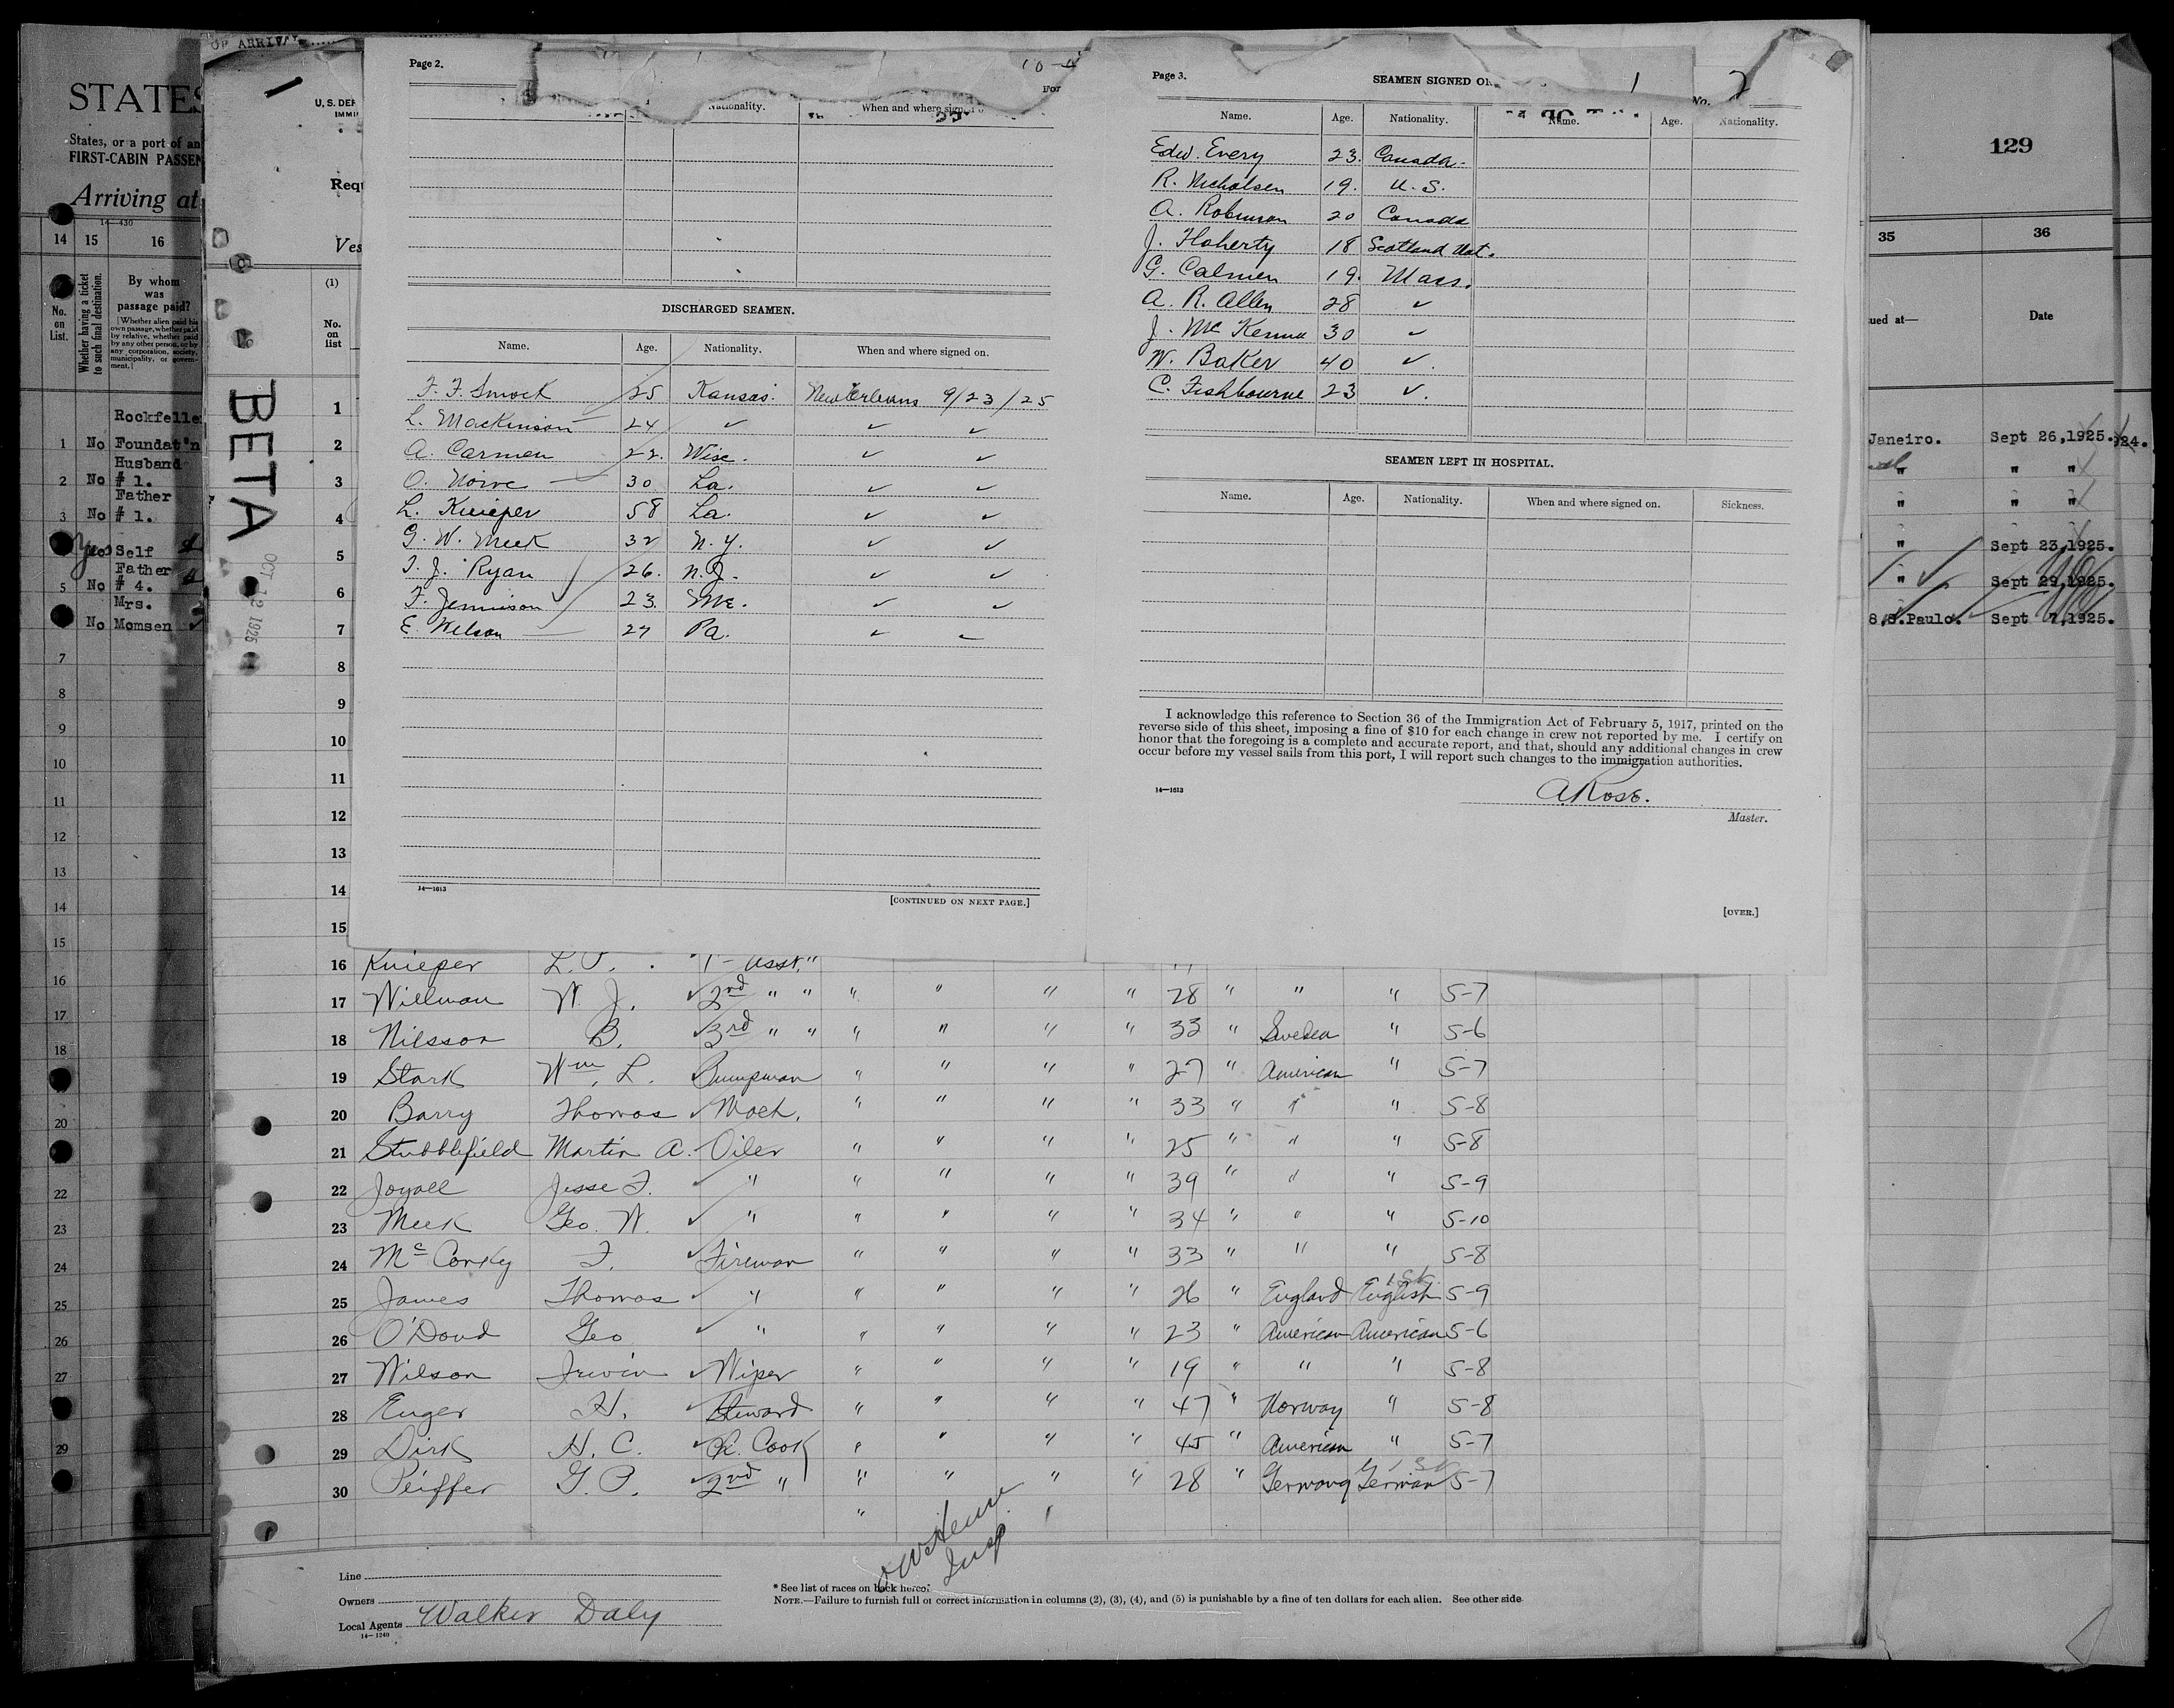 OF ARRIVAL
STATES
States, or a port of an
FIRST-CABIN PASSEN
Arriving at
14—430
14 15 16
No. on List.
Whether having a ticket to such final destination.
By whom was passage paid?
(Whether alien paid his own passage, whether paid by relative, whether paid by any other person, or by any corporation, society, municipality, or government.)
Rockfeller
1 No Foundat'n
Husband
2 No # 1.
Father
3 No # 1.
Self
Father
5 No # 4.
Mrs.
No Momsen
7
8
9
10
11
12
13
14
15
16
17
18
19
20
22
23
24
25
26
27
29
U. S. DEP
IMMI
Requ
Ves
(1)
No. on list
BETA
OCT 12 1925
1
2
3
4
5
6
7
8
9
10
11
12
13
14
15
Page 2.
Nationality. When and where signed
DISCHARGED SEAMEN.
Name. Age. Nationality. When and where signed on.
F. F. Smock 25 Kansas. New Orleans 9/23/25
L. Mackinson 24 ✓ ✓ ✓
A. Carmen 22. Wisc. ✓ ✓
O. Norve 30 La. ✓ ✓
L. Knieper 58 La. ✓ ✓
G. W. Meek 32 N. Y. ✓ ✓
T. J. Ryan 26. N. J. ✓ ✓
F. Jennison 23. Me. ✓ ✓
E. Nelson 27 Pa. ✓
14—1613
[CONTINUED ON NEXT PAGE.]
Page 3.
SEAMEN SIGNED ON
No. 2
Name. Age. Nationality. Name. Age. Nationality.
Edw. Every 23. Canada.
R. Nicholsen 19. U. S.
A. Robinson 20 Canada
J. Flaherty 18 Scotland Nat.
G. Calmen 19. Mass.
A. R. Allen 28 ✓
J. McKenna 30 ✓
W. Baker 40 ✓.
C. Fishbourne 23 ✓.
SEAMEN LEFT IN HOSPITAL.
Name. Age. Nationality. When and where signed on. Sickness.
I acknowledge this reference to Section 36 of the Immigration Act of February 5, 1917, printed on the
reverse side of this sheet, imposing a fine of $10 for each change in crew not reported by me. I certify on
honor that the foregoing is a complete and accurate report, and that, should any additional changes in crew
occur before my vessel sails from this port, I will report such changes to the immigration authorities.
14—1613
A Rose.
Master.
[OVER.]
16 Knieper L. P. 1— Asst. "
17 Willman W. J. 2nd " " " " " " 28 " " " 5-7
18 Nilsson B. 3rd " " " " " " 33 " Sweden " 5-6
19 Stark Wm. L. Pumpman " " " " 27 " American " 5-7
20 Barry Thomas Mach. " " " " 33 " " " 5-8
21 Stubblefield Martin A. Oiler " " " " 25 " " " 5-8
22 Joyall Jesse F. " " " " " 39 " " " 5-9
23 Meek Geo. W. " " " " " 34 " " " 5-10
24 McConky F. Fireman " " " " 33 " " " 5-8
25 James Thomas " " " " " 26 " England English 5-9
26 O'Doud Geo " " " " " 23 " American American 5-6
27 Wilson Irwin Wiper " " " " 19 " " " 5-8
28 Enger H. Steward " " " " 47 " Norway " 5-8
29 Dirk H. C. Ch. Cook " " " " 45 " American " 5-7
30 Peiffer G. P. 2nd " " " " " 28 " Germany German 5-7
Insp
Line
Owners
Local Agents Walker Daly
14—1240
* See list of races on back hereof
NOTE.—Failure to furnish full or correct information in columns (2), (3), (4), and (5) is punishable by a fine of ten dollars for each alien. See other side
129
35 36
ued at— Date
Janeiro. Sept 26,1925. 924.
" " "
" " "
" Sept 23,1925.
" Sept 29,1925.
S.Paulo. Sept 7,1925.